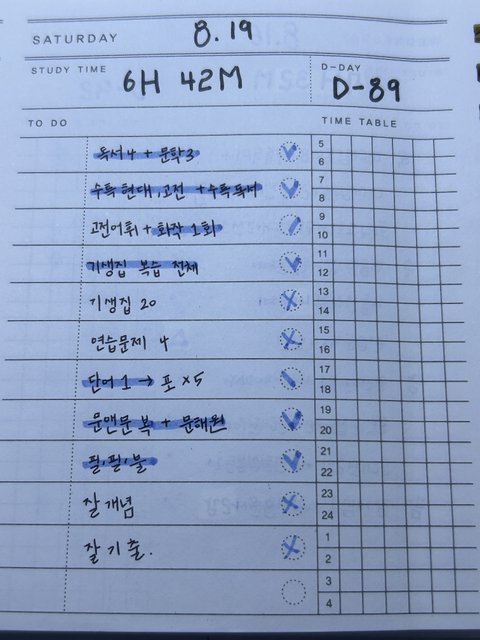 SATURDAY 8.19
STUDY TIME 6H 42M D-DAY D-89
TO DO TIME TABLE
독서4 + 문학3
수특 현대, 고전 + 수특 독서
고전어휘 + 화작 1회
기생집 복습 전체
기생집 20
연습문제 4
단어 1 → 포 x5
문앤문 복 + 문해원
필, 필, 불
잘 개념
잘 기출.
5
6
7
8
9
10
11
12
13
14
15
16
17
18
19
20
21
22
23
24
1
2
3
4